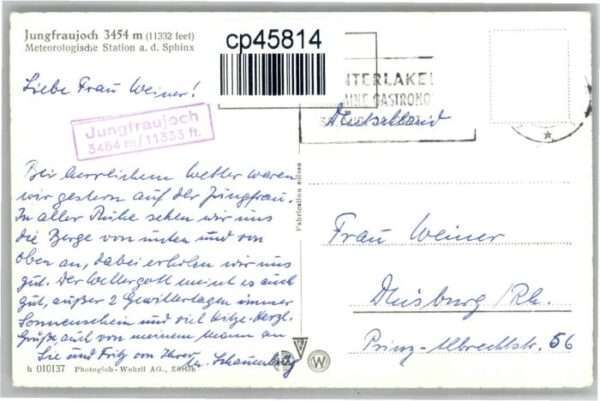 Jungfraujoch 3454 m (11332 feet)
Meteorologische Station a. d. Sphinx
cp45814
Liebe Frau Weiner!
Jungfraujoch
3454 m/11333 ft.
NTERLAKE
INE GASTRONO
Deutschland
Bei herrlichem Wetter waren
wir gestern auf der Jungfrau.
In aller Ruhe sehen wir uns
die Berge von unten und von
oben an, dabei erholen wir uns
gut. Der Wettergott meint es auch
gut, außer 2 Gewitterlagen immer
Sonnenschein und viel Hitze. Herzl.
Grüße auch von meinem Mann an
Sie und Fritz von Ihrer
Schauenburg
Fabrication suisse
Frau Weiner
Duisburg/Rh.
Prinz-Albrechtstr. 56
h 010137 Photoglob-Wehrli AG., Zürich
W